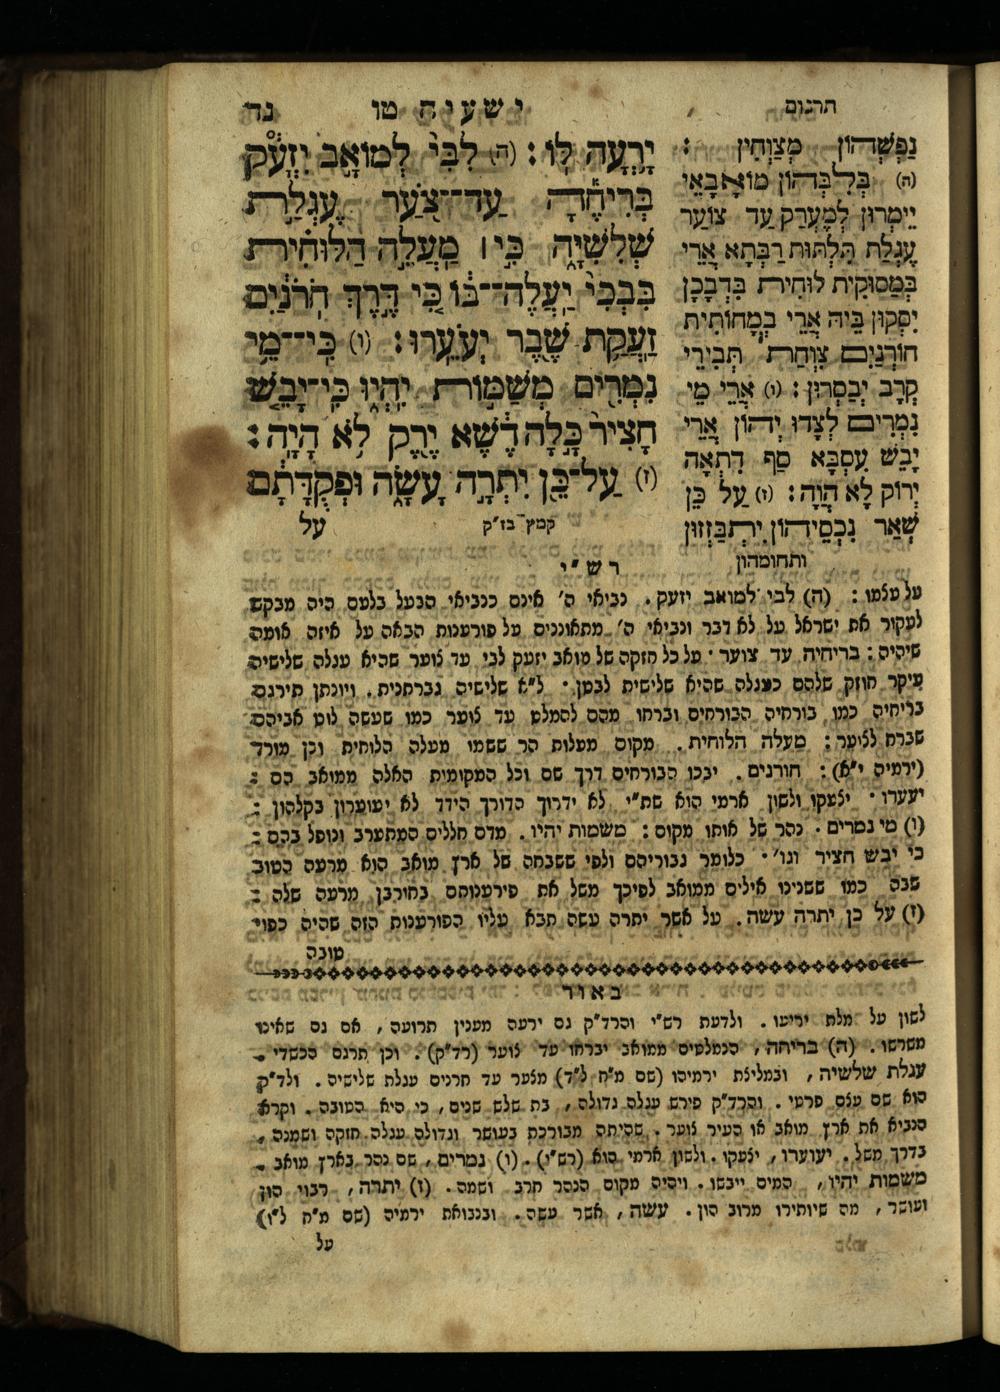 תרגום
ישעיה טו
נד
יָרְעָה לּוֹ : (ה) לִבִּי לְמוֹאָב יִזְעָק
בְּרִיחֶהָ עַד־צֹעַר עֶגְלַת
שְׁלִשִׁיָּה כִּי ׀ מַעֲלֵה הַלּוּחִית
בִּבְכִי יַעֲלֶה־בּוֹ כִּי דֶּרֶךְ חֹרֹנַיִם
זַעֲקַת שֶׁבֶר יְעֹעֵרוּ : (ו) כִּי־מֵי
נִמְרִים מְשַׁמּוֹת יִהְיוּ כִּי־יָבֵשׁ
חָצִיר כָּלָה דֶשֶׁא יֶרֶק לֹא הָיָה :
(ז) עַל־כֵּן יִתְרָה עָשָׂה וּפְקֻדָּתָם
קמץ בז״ק
על
נַפְשְׁהוֹן מְצַוְחִין :
(ה) בְּלִבְּהוֹן מוֹאֲבָאֵי
יֵימְרוּן לְמֶעְרַק עַד צוֹעַר
עֶגְלַת תִּלְתּוּת רַבְּתָא אֲרֵי
בְּמַסוּקִית לוּחִית בִּדְבָכָן
יִסְקוּן בֵּיהּ אֲרֵי בְמָחוֹתִית
חוֹרְנַיִם צִוְחַת תְּבִירֵי
קְרָב יְבַסְרוּן : (ו) אֲרֵי מֵי
נִמְרִים לְצָדוּ יְהוֹן אֲרֵי
יָבֵשׁ עִסְבָּא סַף דִתְאָה
יְרוֹק לָא הֲוָה : (ז) עַל כֵּן
שְׁאַר נִכְסֵיהוֹן יִתְבַּזְזוּן
ותחומהון
רש״י
על עצמו : (ה) לבי למואב יזעק . נביאי ה׳ אינם כנביאי הבעל בלעם היה מבקש
לעקור את ישראל על לא דבר ונביאי ה׳ מתאוננים על פורענות הבאה על איזה אומה
שיהיה : בריחיה עד צוער . על כל חזקה של מואב יזעק לבי עד צוער שהיא עגלה שלישיה
עיקר חוזק שלהם כעגלה שהיא שלישית לבטן . ל״א שלישיה גברתנית . ויונתן תירגם
בריחיה כמו בורחיה הבורחים וברחו מהם להמלט עד צוער כמו שעשה לוט אביהם
שברח לצוער : מעלה הלוחית . מקום מעלות הר ששמו מעלה הלוחית וכן מורד
(ירמיה י״א) : חורנים . יבכו הבורחים דרך שם וכל המקומות האלה ממואב הם :
יעערו . יצעקו ולשון ארמי הוא שת״י לא ידרוך הדורך הידד לא יעוערון בקלהון :
(ו) מי נמרים . נהר של אותו מקום : משמות יהיו . מדם חללים המתערב ונופל בהם :
כי יבש חציר וגו׳ . כלומר גבוריהם ולפי ששבחה של ארץ מואב הוא מרעה הטוב
שבה כמו ששנינו אילים ממואב לפיכך משל את פירענותם בחורבן מרעה שלה :
(ז) על כן יתרה עשה . על אשר יתרה עשה תבא עליו הפורענות הזה שהיה כפוי
טובה
באור
לשון על מלת יריעו . ולדעת רש״י והרד״ק גם ירעה מענין תרועה , אם גם שאינו
משרשו . (ה) בריחה , הנמלטים ממואב יברחו עד צוער (רד״ק) . וכן תרגם הכשדי .
עגלת שלשיה , ובמליצת ירמיהו (שם מ״ח ל״ד) מצער עד חרנים עגלת שלישיה . ולד״ק
הוא שם עצם פרטי . והרד״ק פירש עגלה גדולה , בת שלש שנים , כי היא הטובה . וקרא
הנביא את ארץ מואב או העיר צוער . שהיתה מבורכת בעושר וגדולה עגלה חזקה ושמנה ,
בדרך משל . יעוערו , יצעקו . ולשון ארמי הוא (רש״י) . (ו) נמרים , שם נהר בארץ מואב .
משמות יהיו , המים ייבשו . ויהיה מקום הנהר חרב ושמה . (ז) יתרה , רבוי הון
ועושר , מה שיותירו מרוב הון . עשה , אשר עשה . ובנבואת ירמיה (שם מ״ח ל״ו)
על